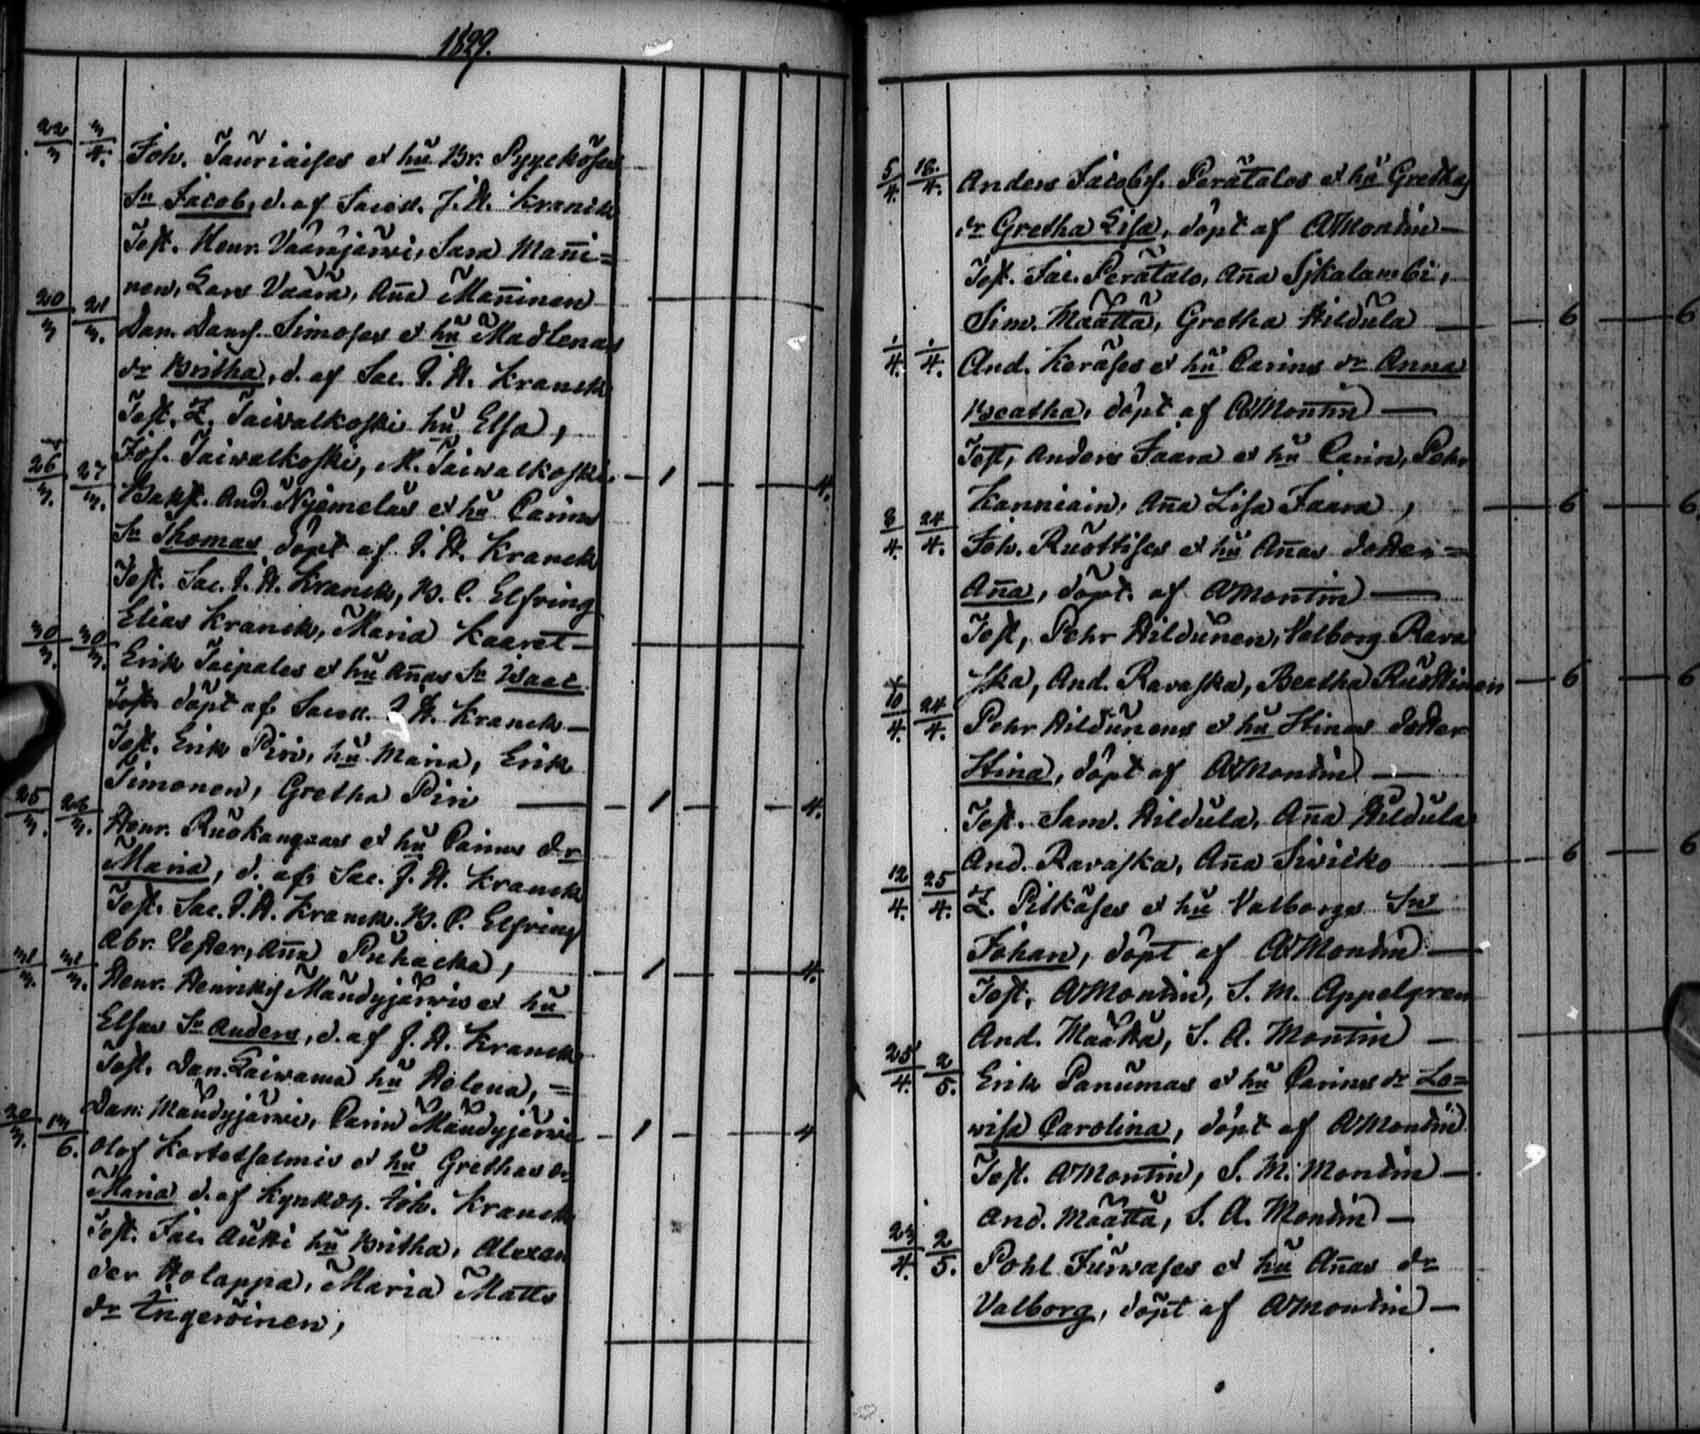 1829.
22/3 3/4. Joh. Tauriaises et hu Br. Pyyeköses
Sn Jacob, d. af Sacell. J. H. Kranck
Test. Henr. Vaarajärwi, Sara Mañi=
nen, Lars Vaara, Aña Mañinen
20/3 21/3. Dan. Dansſ. Simoses et hu Madlenas
dr Britha, d. af Sac. J. H. Kranck
Test. Z. Taiwalkoski hu Elsa,
Jos. Taiwalkoski, M. Taiwalkoski. 1 4.
26/3. 27/3. And. Nyemeläs et hu Carins
Sn Thomas döpt af J. H. Kranck
Test. Sac. J. H. Kranck, B. C. Elfving
Elias Kranck, Maria
30/3. 30/3. Erik Taipales et hu Añas Sn Isaac
döpt af Sacell. J. H. Kranck
Test. Erik Piri, hu Maria, Erik
Simonen, Gretha Piri 1 4.
25/3. 26/3. Henr. Ruokangaas et hu Carins dr
Maria, d. af Sac. J. H. Kranck
Test. Sac. J. H. Kranck. B. C. Elfving
Abr. Aña Puhacka, 1 4.
31/3. 31/3. Henr. Henriksſ Mändyjärwis et hu
Elsas Sn Anders, d. af J. H. Kranck
Test. Dan. Laiwama hu Helena, =
Dan. Mändyjärwi, Carin Mändyjärwi 1 4
20/3. /6. Olof Kortetsalmis et hu Grethas dr
Maria d. af Kyrkoh. Joh. Kranck
Test. Jac. Autti hu Britha, Alexan
der Holappa, Maria Matts
dr Ingeröinen,
5/4. 18./4. Anders Jacobsſ. Perätalos et hu Grethas
dr Gretha Lisa, döpt af AMontin
Test. Jac. Perätalo, Aña Sjkalambi,
Sim. Määttä, Gretha Hildula 6 6
1/4. 1/4. And. Keräses et hu Carins dr Anna
Beatha, döpt af AMontin
Test, Anders Jaara et hu Carin, Pehr
Kanniain, Aña Lisa Jaara, 6 6
8/4. 24/4. Joh. Ruottises et hu Añas dotter=
Aña, döpt. af AMontin
Test, Pehr Hildunen, Valborg Rava
ska, And. Ravaska, Beatha Ruottinen 6 6
10/4. 24/4. Pehr Hildunens et hu Stinas dotter
Stina, döpt af AMontin
Test. Sam. Hildula, Aña Hildula
And. Ravaska, Aña Siwikko 6 6
12/4. 25/4. Z. Pitkäses et hu Valborgs Sn
Johan, döpt af AMontin
Test, AMontin, S. M. Appelgren
And. Määttä, S. A. Montin
25/4. 2/5. Erik Panumas et hu Carins dr Lo=
wisa Carolina, döpt af AMontin
Test. AMontin, S. M. Montin
And. Määttä, S. A. Montin
23/4. 2/5. Pohl Jurwases et hu Añas dr
Valborg, döpt af AMontin